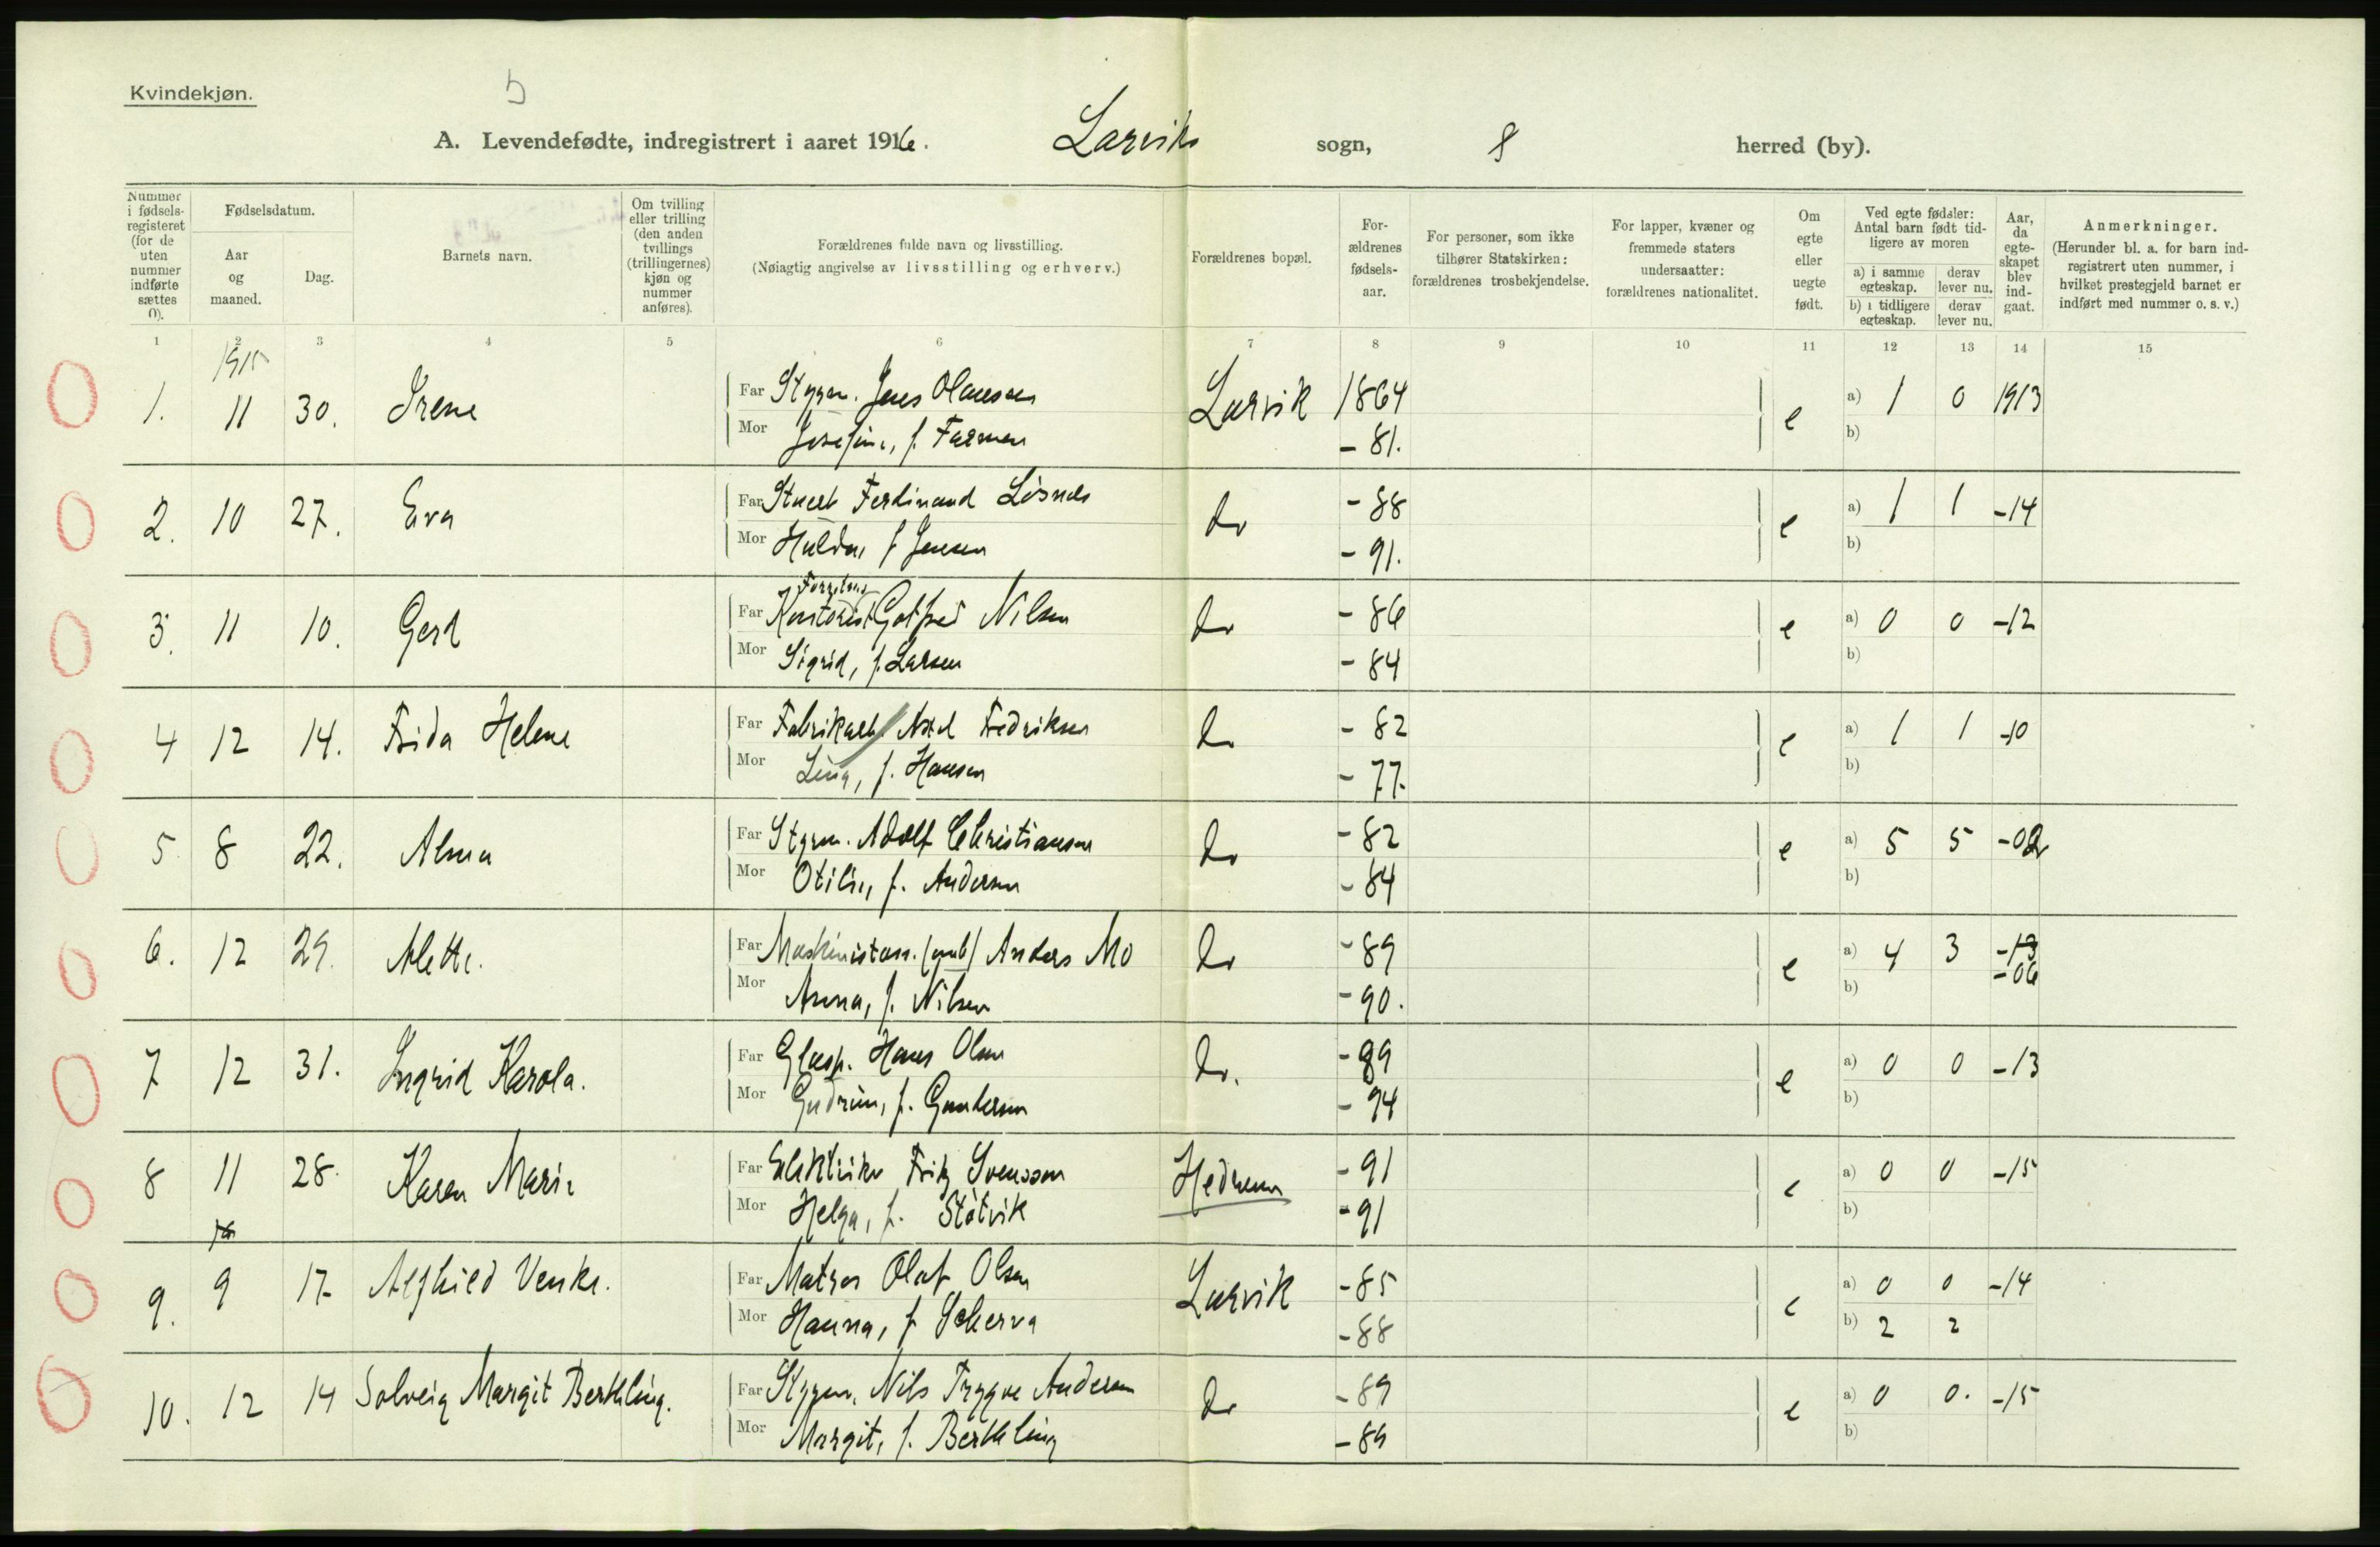 Kvindekjøn.
5
A. Levendefødte, indregistrert i aaret 1916. Larviks sogn, herred (by).
Nummer i fødselsregisteret (for de uten nummer indførte sættes 0).
Fødselsdatum.
Aar og maaned.
Dag.
Barnets navn.
Om tvilling eller trilling (den anden tvillings (trillingernes) kjøn og nummer anføres).
Forældrenes fulde navn og livsstilling.
(Nøiagtig angivelse av livsstilling og erhverv.)
Forældrenes bopæl.
Forældrenes fødselsaar.
For personer, som ikke tilhører Statskirken: forældrenes trosbekjendelse.
For lapper, kvæner og fremmede staters undersaatter: forældrenes nationalitet.
Om egte eller uegte født.
Ved egte fødsler: Antal barn født tidligere av moren
a) i samme egteskap.
derav lever nu.
b) i tidligere egteskap.
derav lever nu.
Aar, da egteskapet blev indgaat.
Anmerkninger.
(Herunder bl. a. for barn indregistrert uten nummer, i hvilket prestegjeld barnet er indført med nummer o. s. v.)
1 2 3 4 5 6 7 8 9 10 11 12 13 14 15
1915
1. 11 30. Irene Far Styrm. Jens Olaussen Larvik 1864 e a) 1 0 1913
Mor Josefine, f. Farmen - 81. b)
2. 10 27. Eva Far Ferdinand Løsnæs do - 88 e a) 1 1 -14
Mor Hulda, f Jensen - 91. b)
3. 11 10. Gerd Far Kontorist Gotfred Nilsen do - 86 e a) 0 0 -12
Mor Sigrid, f. Larsen - 84 b)
4 12 14. Frida Helene Far Fabrikarb. Axel Fredriksen do - 82 e a) 1 1 -10
Mor Lina, f. Hansen - 77. b)
5 8 22. Alma Far Styrm. Adolf Christiansen do - 82 e a) 5 5 -02
Mor Otilie, f. Andersen - 84 b)
6. 12 29. Alette. Far Maskinistass. Anders Mo do - 89 e a) 4 3 -13
-06
Mor Anna, f. Nilsen - 90. b)
7 12 31. Ingrid Karola. Far Glasp. Hans Olsen do. - 89 e a) 0 0 -13
Mor Gudrun, f. Gundersen - 94 b)
8 11 28. Karen Marie Far Elektriker Fritz Svensson Hedrum - 91 e a) 0 0 -15
Mor Helga, f. Støtvik - 91 b)
9. 9 17. Alfhild Venke. Far Matros Olaf Olsen Larvik - 85 e a) 0 0 -14
Mor Hanna, f Scherva - 88 b) 2 2
10. 12 14 Solveig Margit Berthling. Far Styrm. Nils Trygve Andersen do - 89 e a) 0 0. -15
Mor Margit, f. Berthling - 89 b)